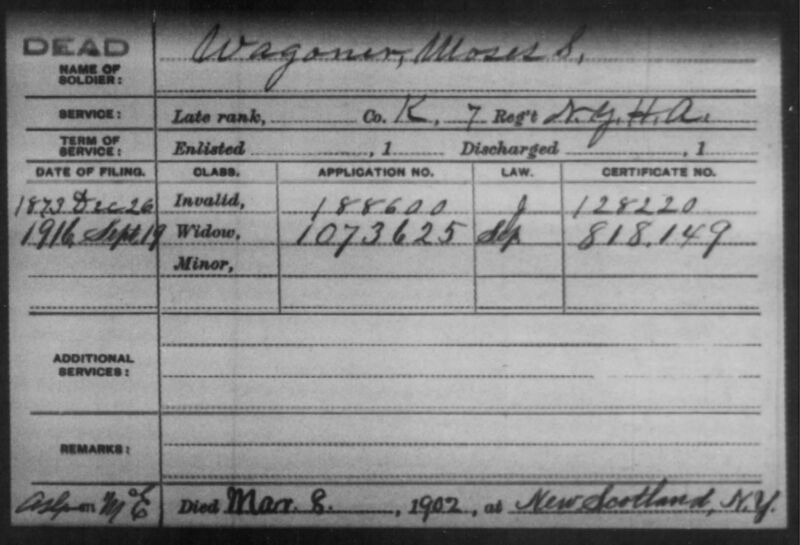 DEAD
Wagoner, Moses S,
NAME OF
SOLDIER:
SERVICE: Late rank, Co. K, 7 Reg't N.Y.H.A.
TERM OF
SERVICE: Enlisted , 1 Discharged , 1
DATE OF FILING. CLASS. APPLICATION NO. LAW. CERTIFICATE NO.
1873 Dec 26 Invalid, 188600 128220
1916, Sept 19 Widow, 1073625 Sep 818.149
Minor,
ADDITIONAL
SERVICES:
REMARKS:
Died Mar. 8. , 1902, at New Scotland, N.Y.